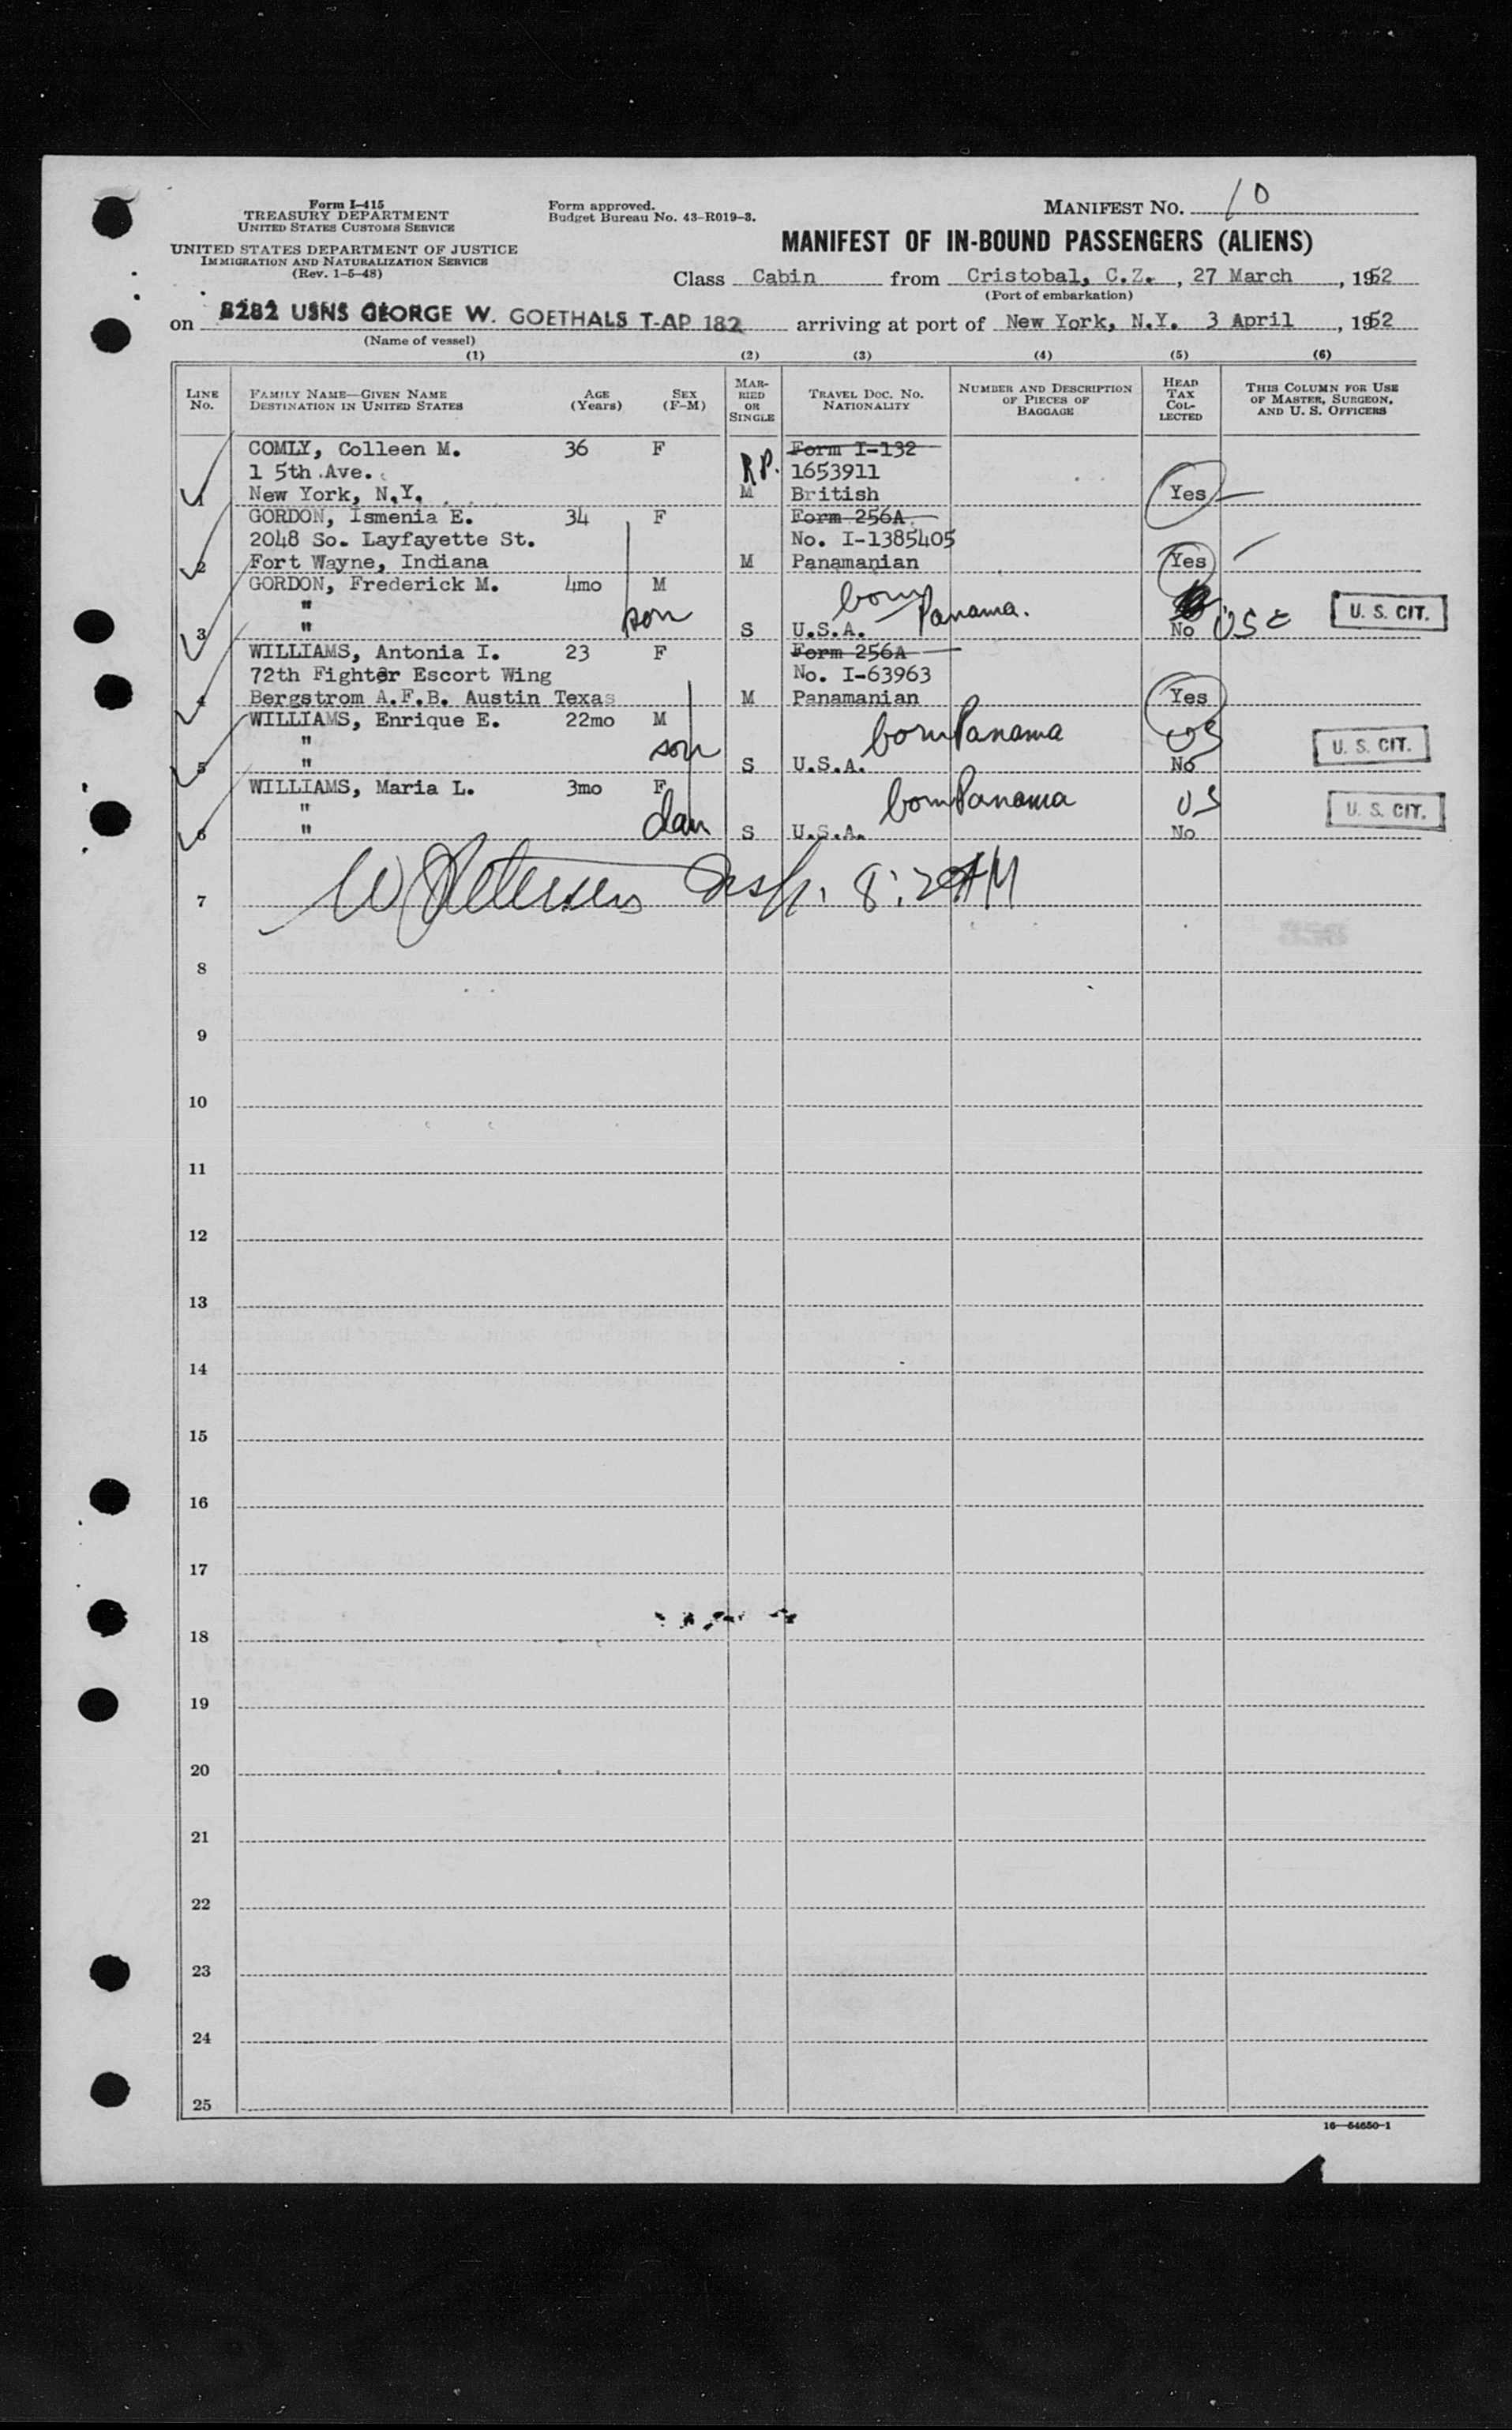 Form I-415
TREASURY DEPARTMENT
UNITED STATES CUSTOMS SERVICE
UNITED STATES DEPARTMENT OF JUSTICE
IMMIGRATION AND NATURALIZATION SERVICE
(Rev. 1-5-48)
Form approved.
Budget Bureau No. 43-R019-3.
MANIFEST NO. 10
MANIFEST OF IN-BOUND PASSENGERS (ALIENS)
Class Cabin from Cristobal, C.Z., 27 March, 1952
(Port of embarkation)
on 8282 USNS GEORGE W. GOETHALS T-AP 182 arriving at port of New York, N.Y. 3 April, 1952
(Name of vessel)
(1) (2) (3) (4) (5) (6)
LINE No. FAMILY NAME—GIVEN NAME DESTINATION IN UNITED STATES AGE (Years) SEX (F-M) MARRIED OR SINGLE TRAVEL DOC. NO. NATIONALITY NUMBER AND DESCRIPTION OF PIECES OF BAGGAGE HEAD TAX COLLECTED THIS COLUMN FOR USE OF MASTER, SURGEON, AND U. S. OFFICERS
COMLY, Colleen M. 36 F Form I-132
1 5th Ave. R.P. 1653911
1 New York, N.Y. M British Yes
GORDON, Ismenia E. 34 F Form 256A
2048 So. Layfayette St. No. I-1385405
2 Fort Wayne, Indiana M Panamanian Yes
GORDON, Frederick M. 4mo M
" son born Panama. USC U. S. CIT.
3 " S U.S.A. No
WILLIAMS, Antonia I. 23 F Form 256A
72th Fighter Escort Wing No. I-63963
4 Bergstrom A.F.B. Austin Texas M Panamanian Yes
WILLIAMS, Enrique E. 22mo M
" son born Panama US U. S. CIT.
5 " S U.S.A. No
WILLIAMS, Maria L. 3mo F
" dau born Panama US U. S. CIT.
6 " S U.S.A. No
7 W Petersen Insp. 8:20AM
8
9
10
11
12
13
14
15
16
17
18
19
20
21
22
23
24
25
16—54650-1